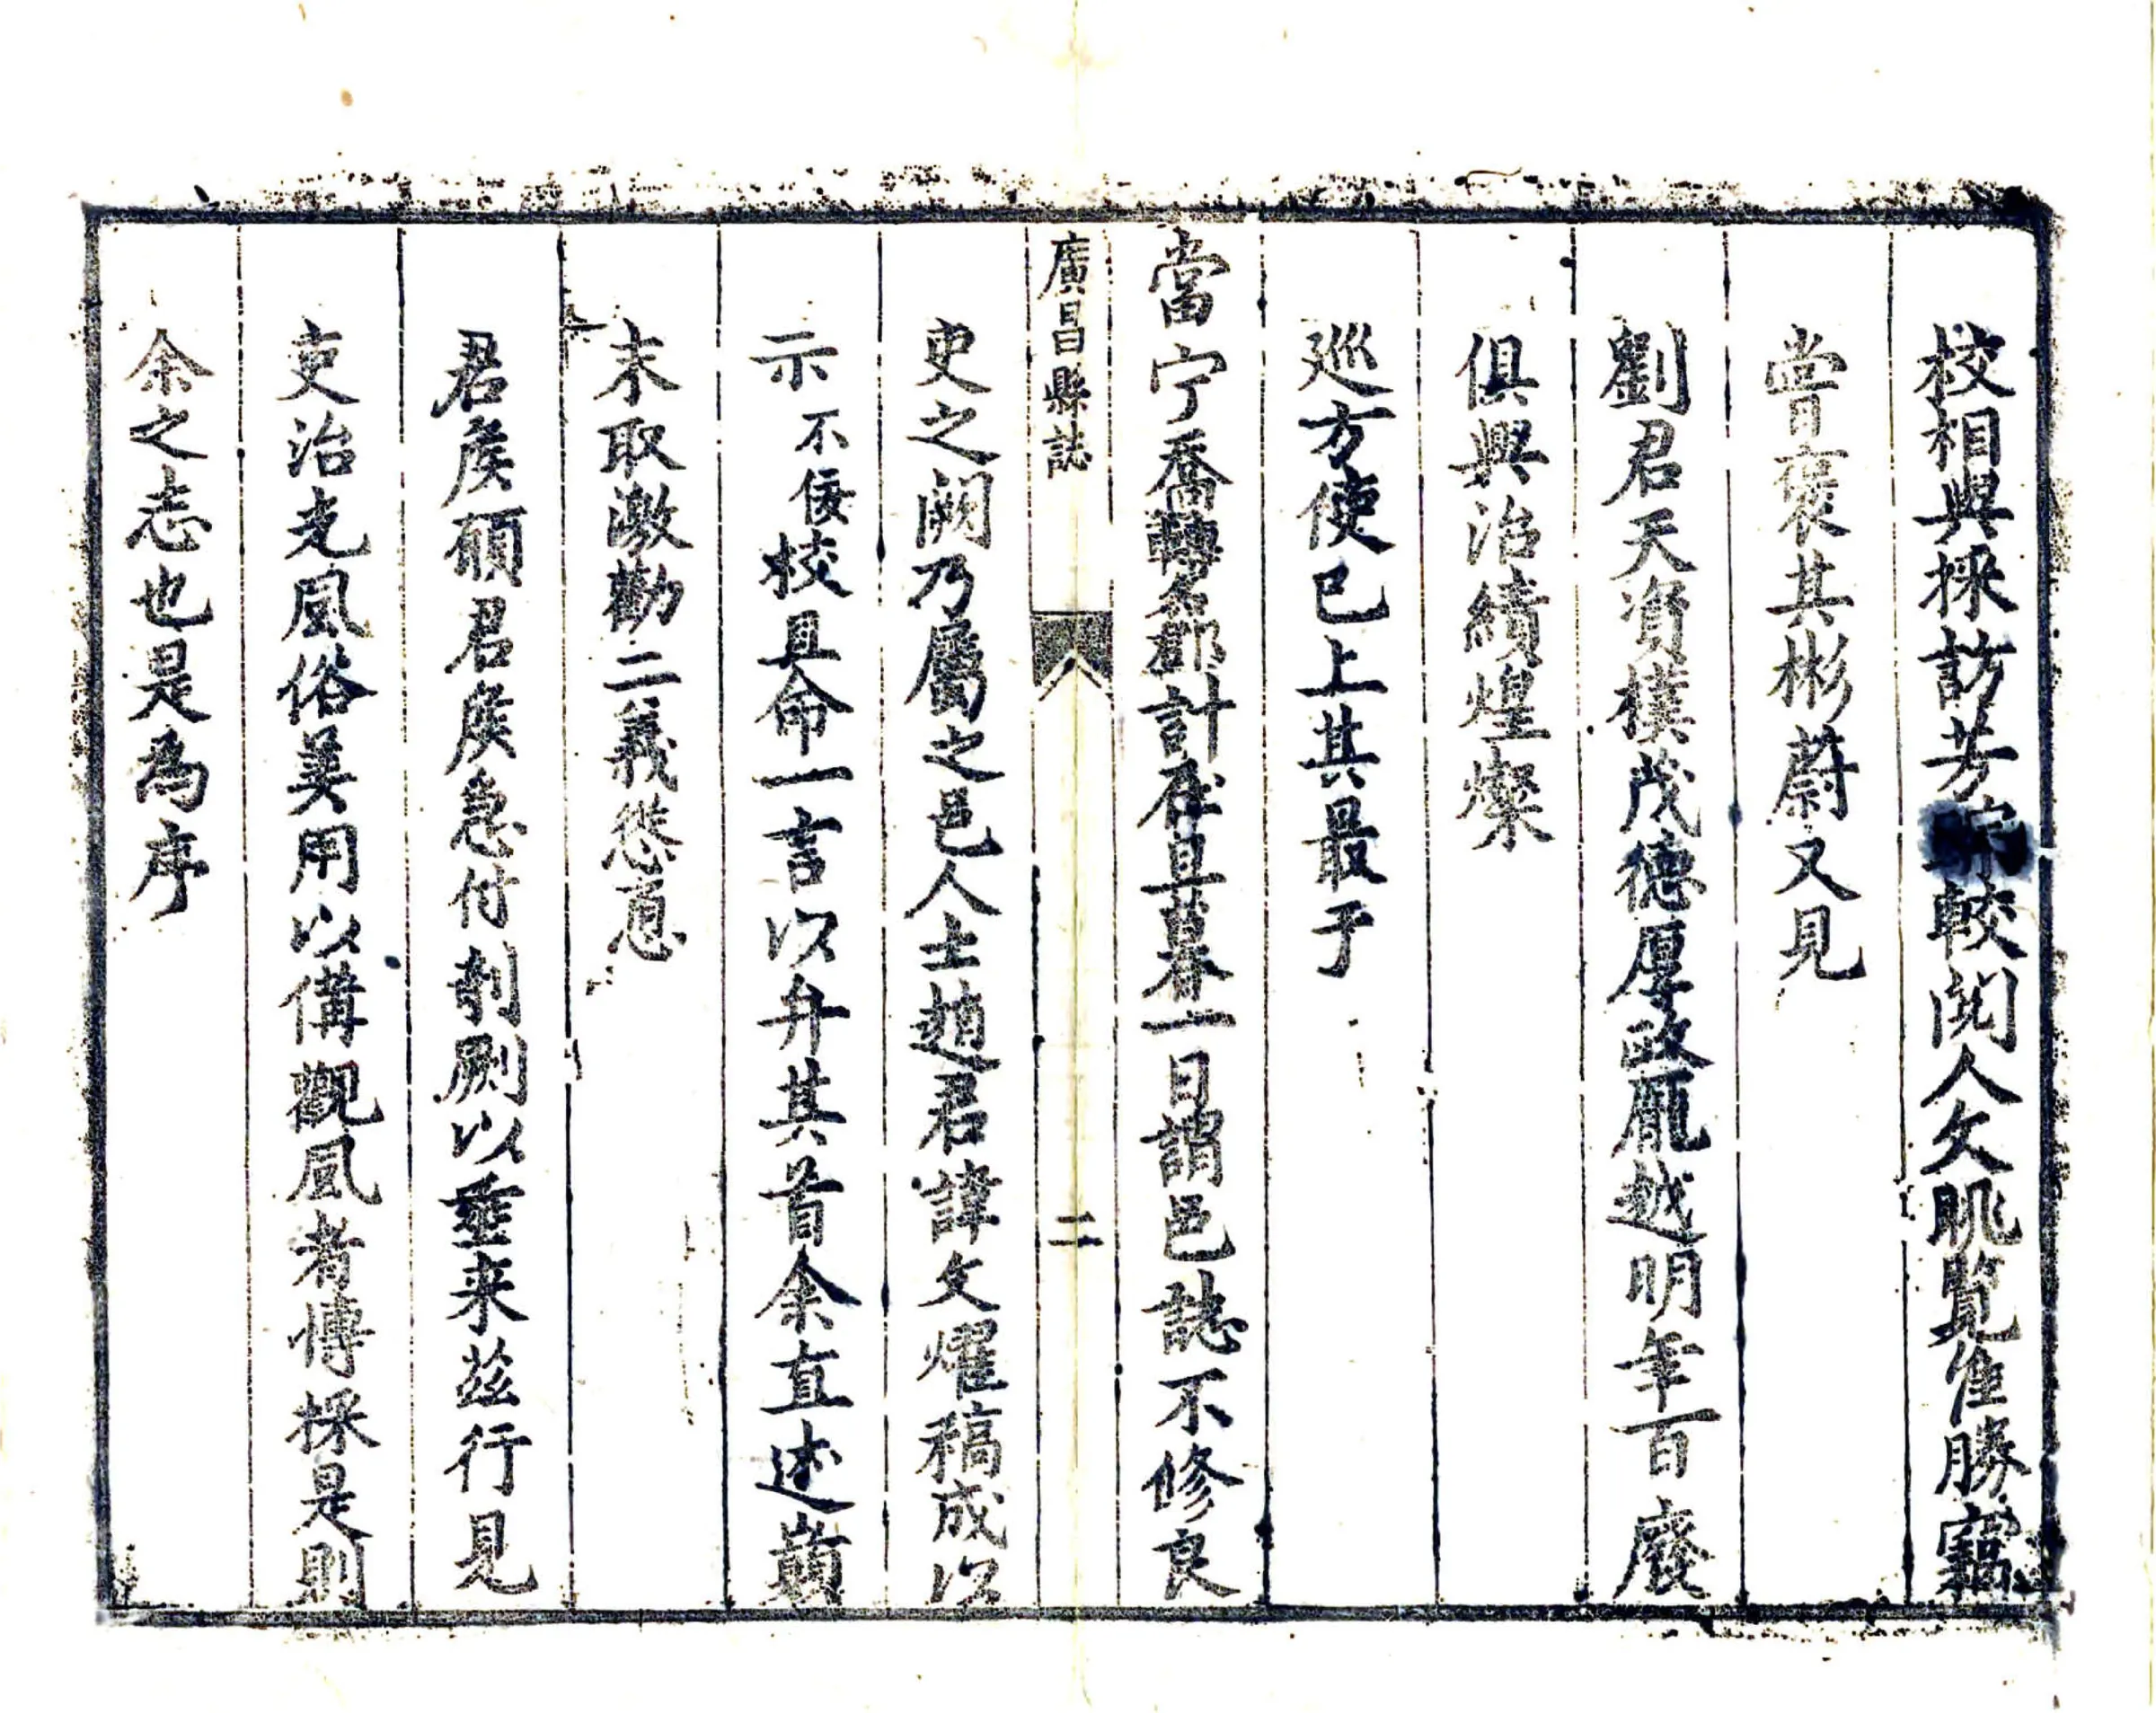 校相與採訪芳踪較閱人文眺覧佳勝竊
嘗褒其彬蔚又見
劉君天資樸茂德厚政龎越明年百廢
俱興治績煌燦
廵方使已上其最于
當宁喬轉名郡計在旦暮一日謂邑誌不修良
廣昌縣誌
二
吏之闕乃屬之邑人士趙君諱文燿稿成以
示不佞校且命一言以弁其首余直述巔
末取激勸二義慫恿
君矦願君矦急付剞劂以垂来茲行見
吏治光風俗美用以備觀風者慱採是則
余之志也是為序